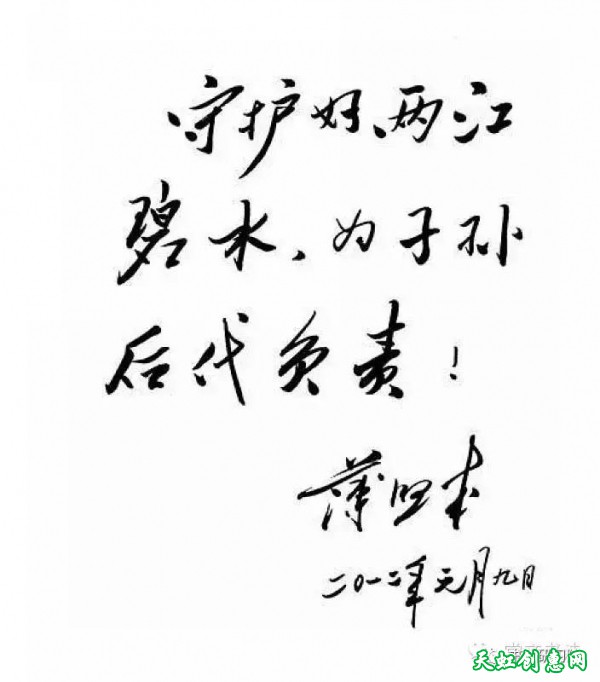 守护好两江
碧水、为子孙
后代负责!
薄熙来
二〇一二年元月九日
天虹创意网